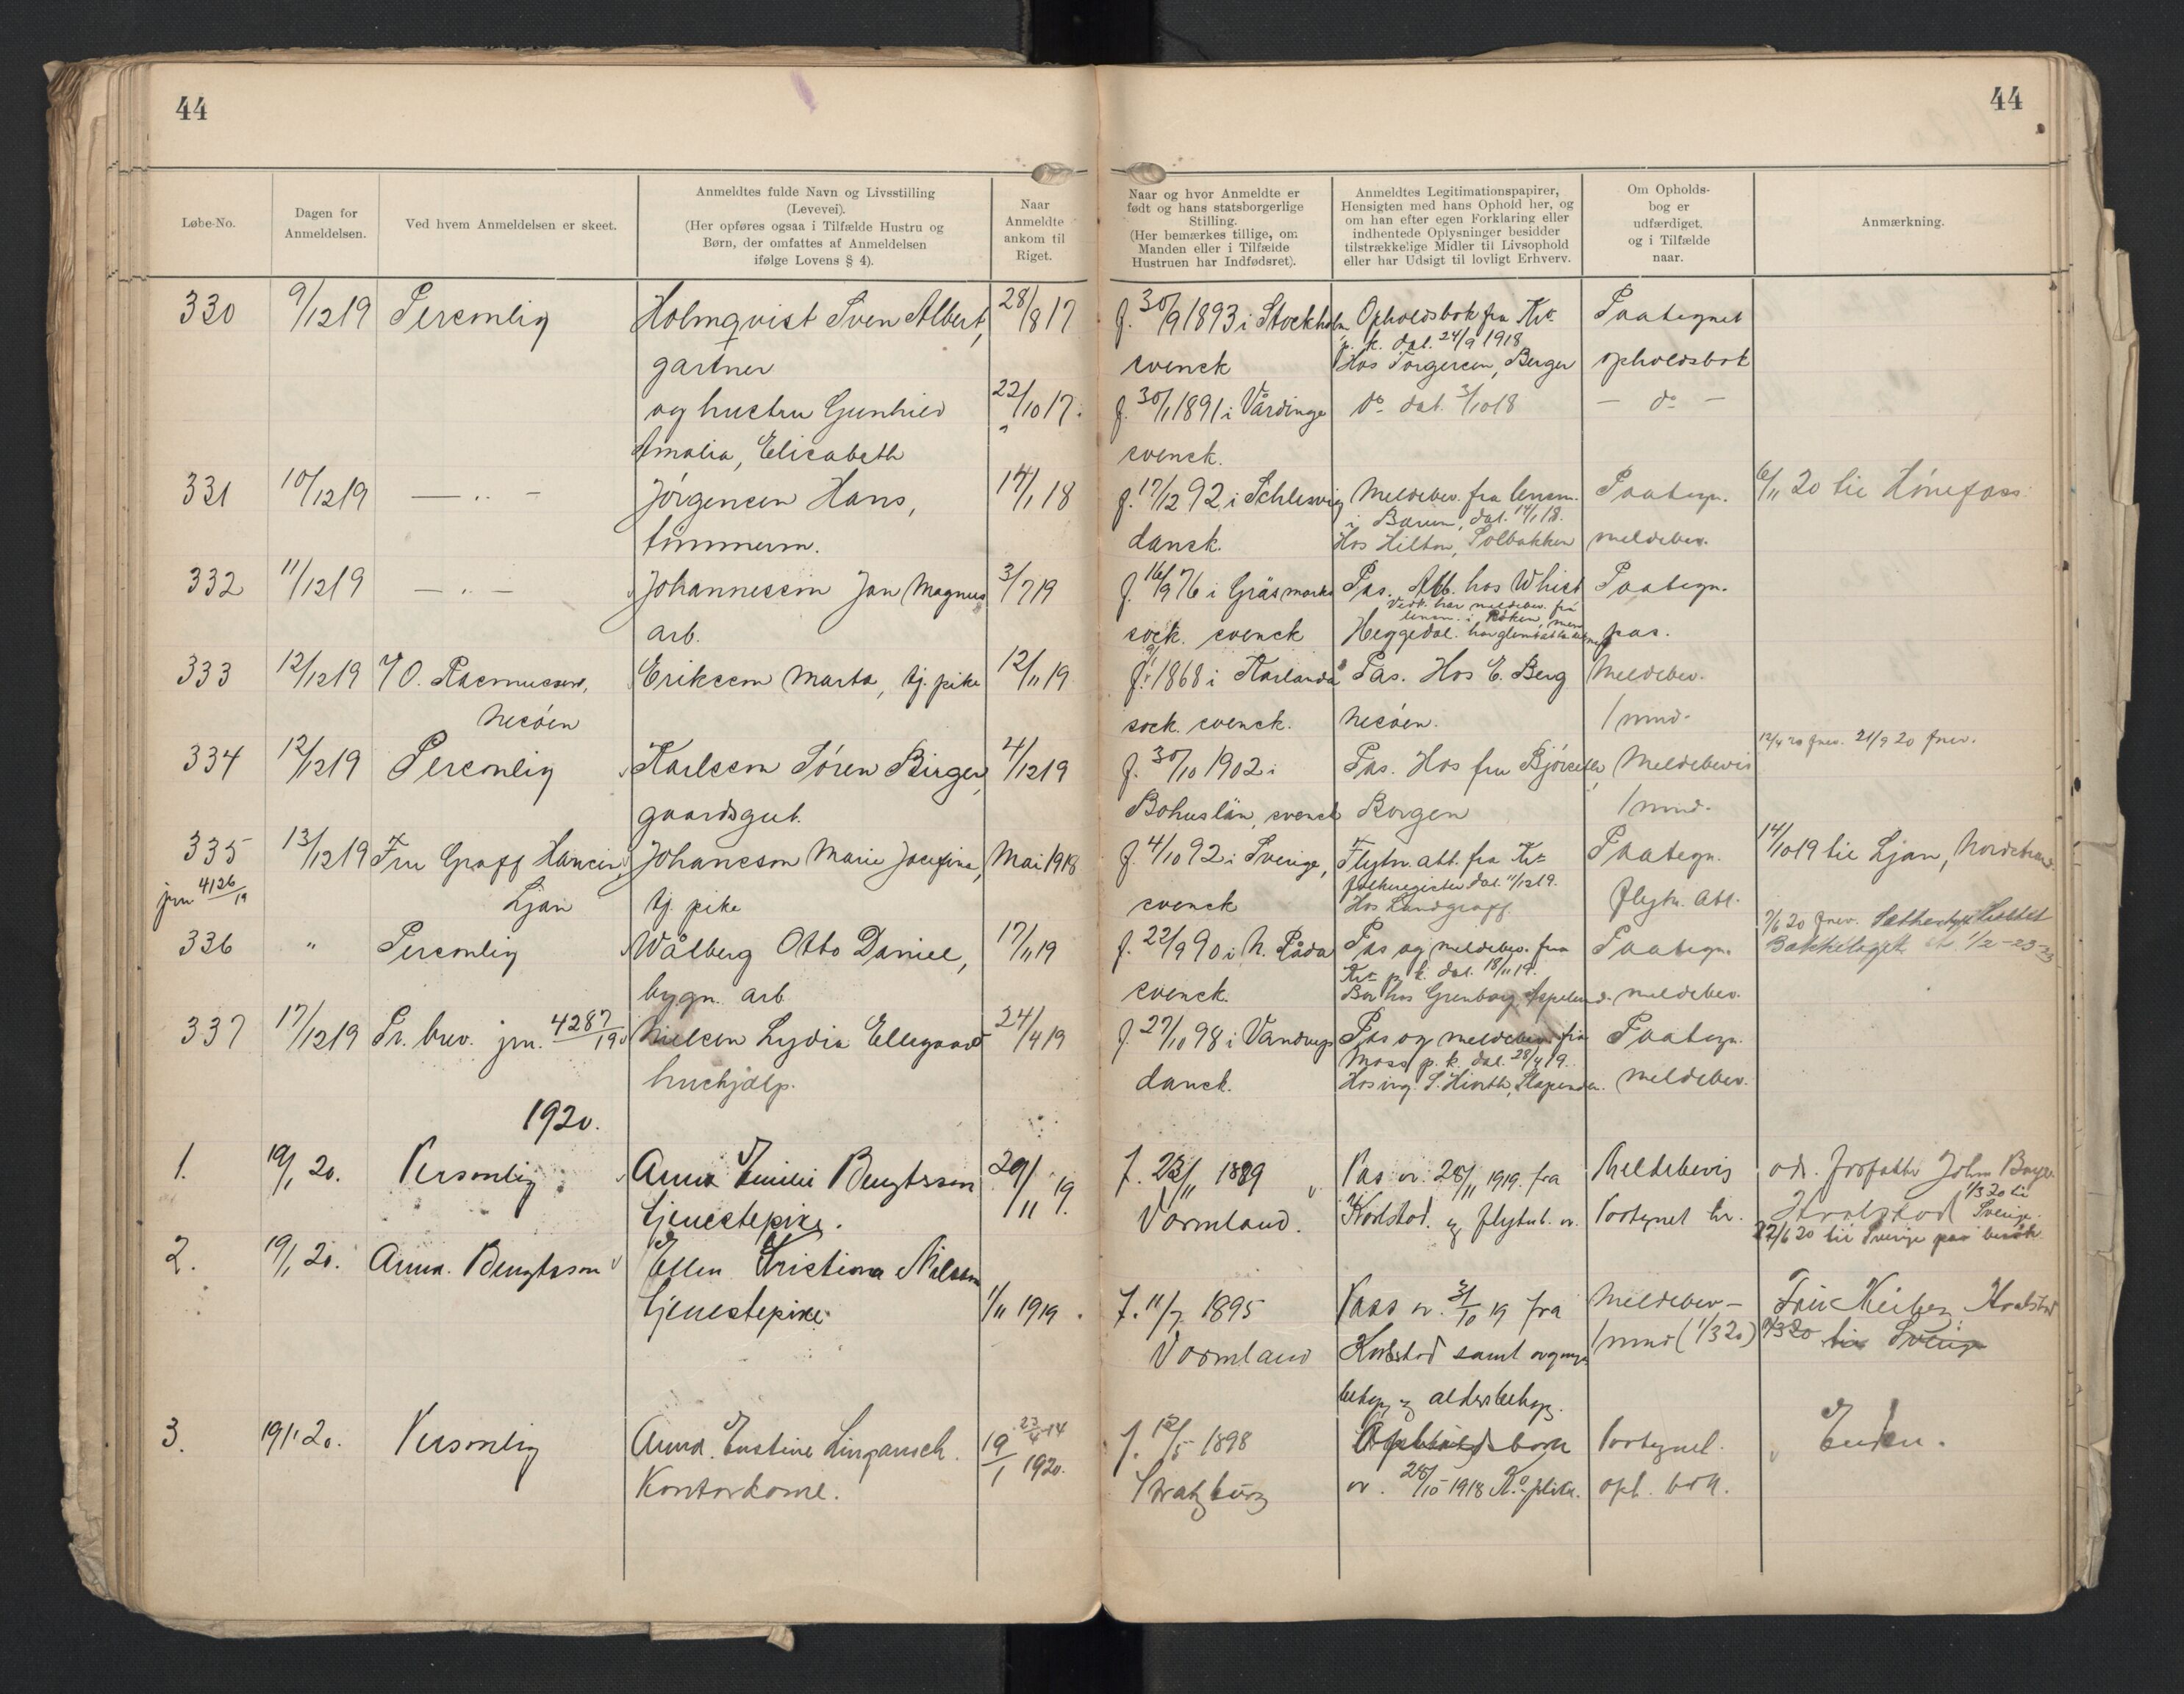 44
44
Løbe-No.
Dagen for
Anmeldelsen.
Ved hvem Anmeldelsen er skeet.
Anmeldtes fulde Navn og Livsstilling
(Levevei).
(Her opføres ogsaa i Tilfælde Hustru og
Børn, der omfattes af Anmeldelsen
ifølge Lovens § 4).
Naar
Anmeldte
ankom til
Riget.
Naar og hvor Anmeldte er
født og hans statsborgerlige
Stilling.
(Her bemærkes tillige, om
Manden eller i Tilfælde
Hustruen har Indfødsret).
Anmeldtes Legitimationspapirer,
Hensigten med hans Ophold her, og
om han efter egen Forklaring eller
indhentede Oplysninger besidder
tilstrækkelige Midler til Livsophold
eller har Udsigt til lovligt Erhverv.
Om Opholds-
bog er
udfærdiget.
og i Tilfælde
naar.
Anmærkning.
330 9/12 19 Personlig Holmqvist Sven Albert, 28/8 17 f. 30/9 1893 i Stockholm, Opholdsbok fra Kr.a Paategnet
p. k. dat. 24/9 1918
gartner svensk Hos Torgersen, Berger opholdsbok
og hustru Gunhild 22/10 17. f. 30/1 1891 i Vårdinge Do dat. 3/10 18 — do —
Amalia, Elisabeth svensk.
331 10/12 19 — „ — Jørgensen Hans, 14/1 18 f. 17/12 92 i Schlesvig Meldebev. fra lensm. Paategn. 6/11 20 til Hønefoss
i Bærum, dat. 14/1 18.
tømmerm. dansk. Hos Hilton, Solbakken meldebev.
332 11/12 19 — „ — Johannesson Jan Magnus 3/7 19 f. 16/9 76 i Gräsmarks Pas. Arb. hos Whist Paategn.
Vedk. har meldebev. fra
lensm. i Røken, men
arb. sock. svensk Heggedal. har glemt at ta pas.
333 12/12 19 O. Rasmussen, Eriksson Marta, tj. pike 12/11 19 f. 1868 i Karlanda Pas. Hos E. Berg Meldebev.
Nesøen sock svensk. Nesøen. 1 mnd.
12/4 20 fnev. 21/9 20 fnev.
334 12/12 19 Personlig Karlsson Søren Birger, 4/12 19 f. 30/10 1902 i Pas. Hos fru Meldebevis
gaardsgut. Bohuslän, svensk Borgen 1 mnd.
335 13/12 19 Fru Graff Johansson Marie Josefina, Mai 1918 f. 4/10 92 i Sverige, Flytn. att. fra Kr.a Paategn. 14/10 19 til Ljan, Nordstrand
jnr 4126/19 folkeregister dat. 11/12 19.
Ljan tj. pike svensk Hos Landgraff. flytn. att.
7/6 20 fnev.
336 " Personlig Wålberg Otto Daniel, 17/11 19 f. 22/9 90 i N. Råda Pas og meldebev. fra Paategn. Bækkelaget 1/2-23
Kr.a p. k. dat. 18/11 19.
bygn. arb. svensk. Bor hos Grenborg, meldebev.
337 17/12 19 Pr. brev. jnr. 4287/19 Nielsen Lydia Ellegaard 24/4 19 f. 27/10 98 i Vandrup Pas og meldebevis fra Paategn.
Moss p. k. dat. 28/4 19.
hushjælp. dansk. Hos ing. S. Hiorth, Slependen. meldebev.
1920.
1. 19/1 20. Personlig Anna Emilie Bengtsson 29/11 19. f. 23/11 1889 Pas av 28/11 1919 fra Meldebevis adr. forfatter Johan Bojer
1/3 20 til
tjenestepike. Värmland. Karlstad og flytnb. av. Paategnet Hvalstad Sverige.
22/6 20 til Sverige paa besøk
2. 19/1 20. Anna Bengtsson Ellen Kristiana Nilsson
tjenestepike. 1/11 1919. f. 11/7 1895 Pass av 3/10 19 fra Meldebev— Hvalstad
Värmland Karlstad samt 1 mnd (1/3 20) 1/3 20 til Sverige
3. 19/1 20. Personlig Anna 23/4 14 f. 12/5 1898 Opholdsbok Paategnet. Enden.
19/1 1920.
Kontordame. av. 28/10 1918 oph. bok.